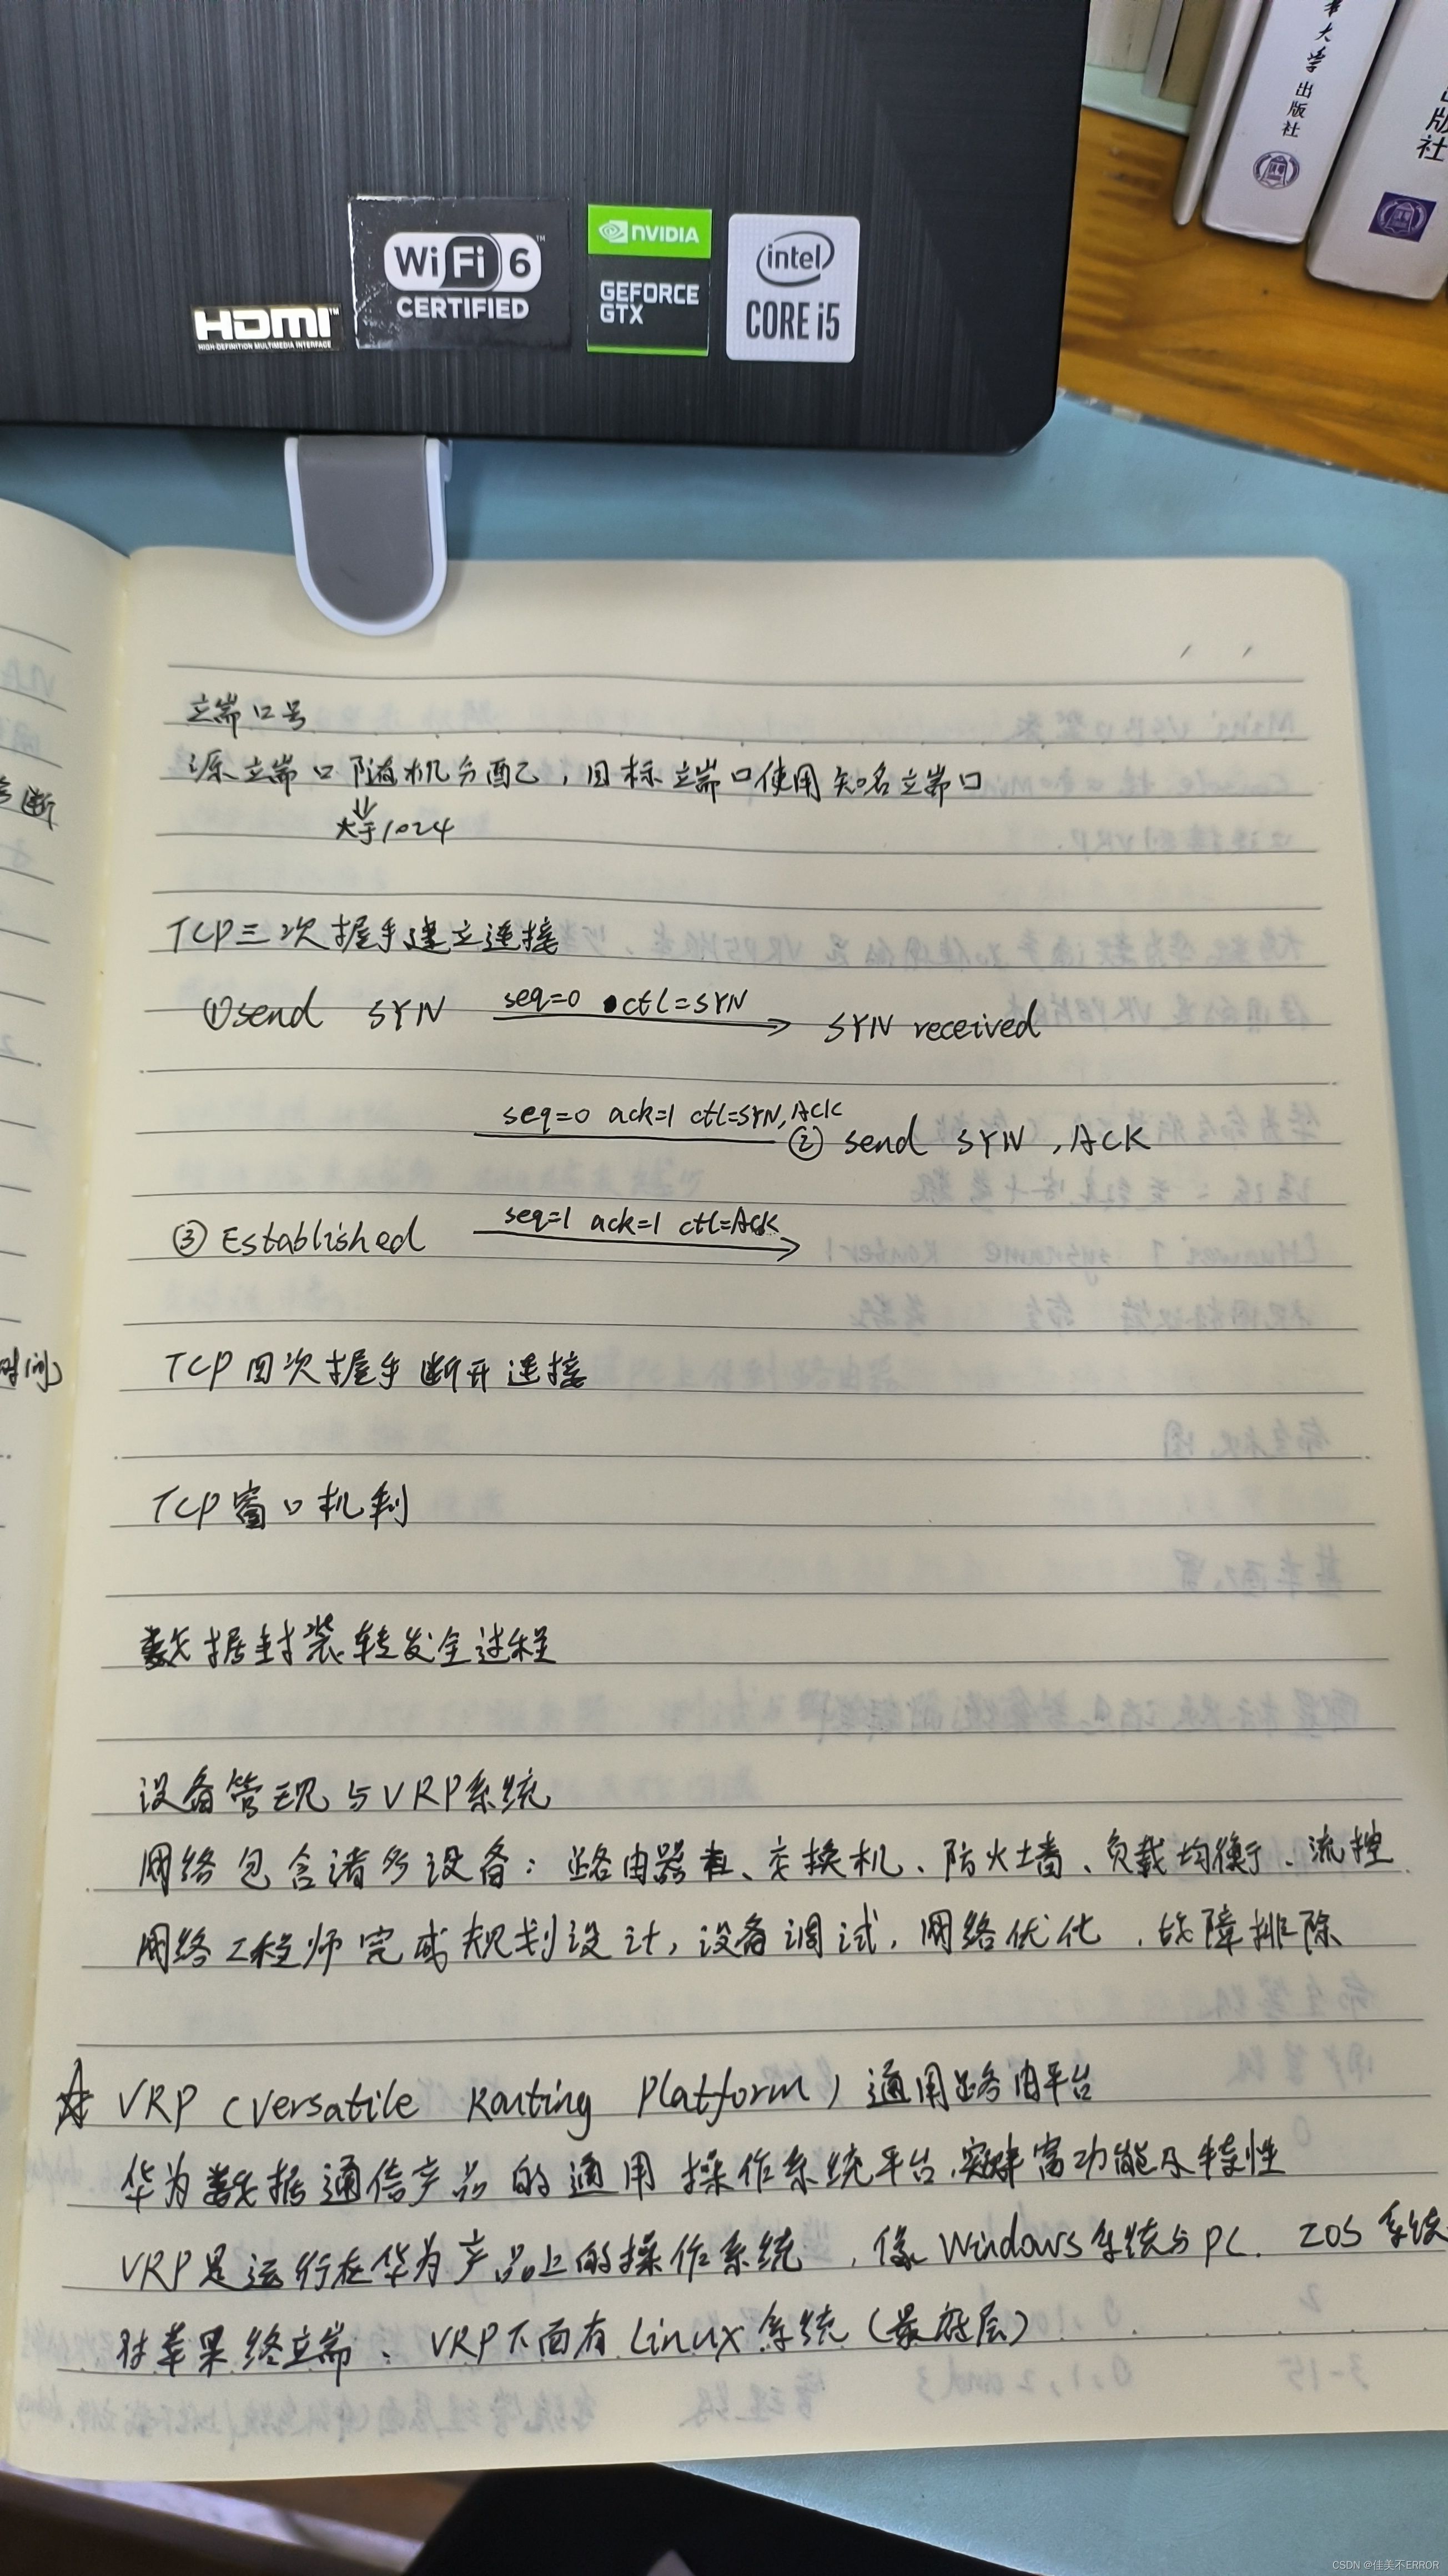 大学出版社
出版社
WiFi 6™
CERTIFIED
NVIDIA
GEFORCE
GTX
intel
CORE i5
HDMI™
HIGH-DEFINITION MULTIMEDIA INTERFACE
端口号
源端口随机分配,目标端口使用知名端口
大于1024
TCP三次握手建立连接
①send SYN seq=0 ctl=SYN SYN received
seq=0 ack=1 ctl=SYN,ACK ② send SYN,ACK
③ Established seq=1 ack=1 ctl=ACK
TCP四次握手断开连接
TCP窗口机制
数据封装转发全过程
设备管理与VRP系统
网络包含诸多设备:路由器、交换机、防火墙、负载均衡、流控
网络工程师完成规划设计,设备调试,网络优化,故障排除
☆ VRP (Versatile Routing Platform) 通用路由平台
华为数据通信产品的通用操作系统平台,丰富功能及特性
VRP是运行在华为产品上的操作系统,像Windows系统与PC、IOS系统
对苹果终端、VRP下面有Linux系统(最底层)
断
时间)
CSDN @佳美不ERROR